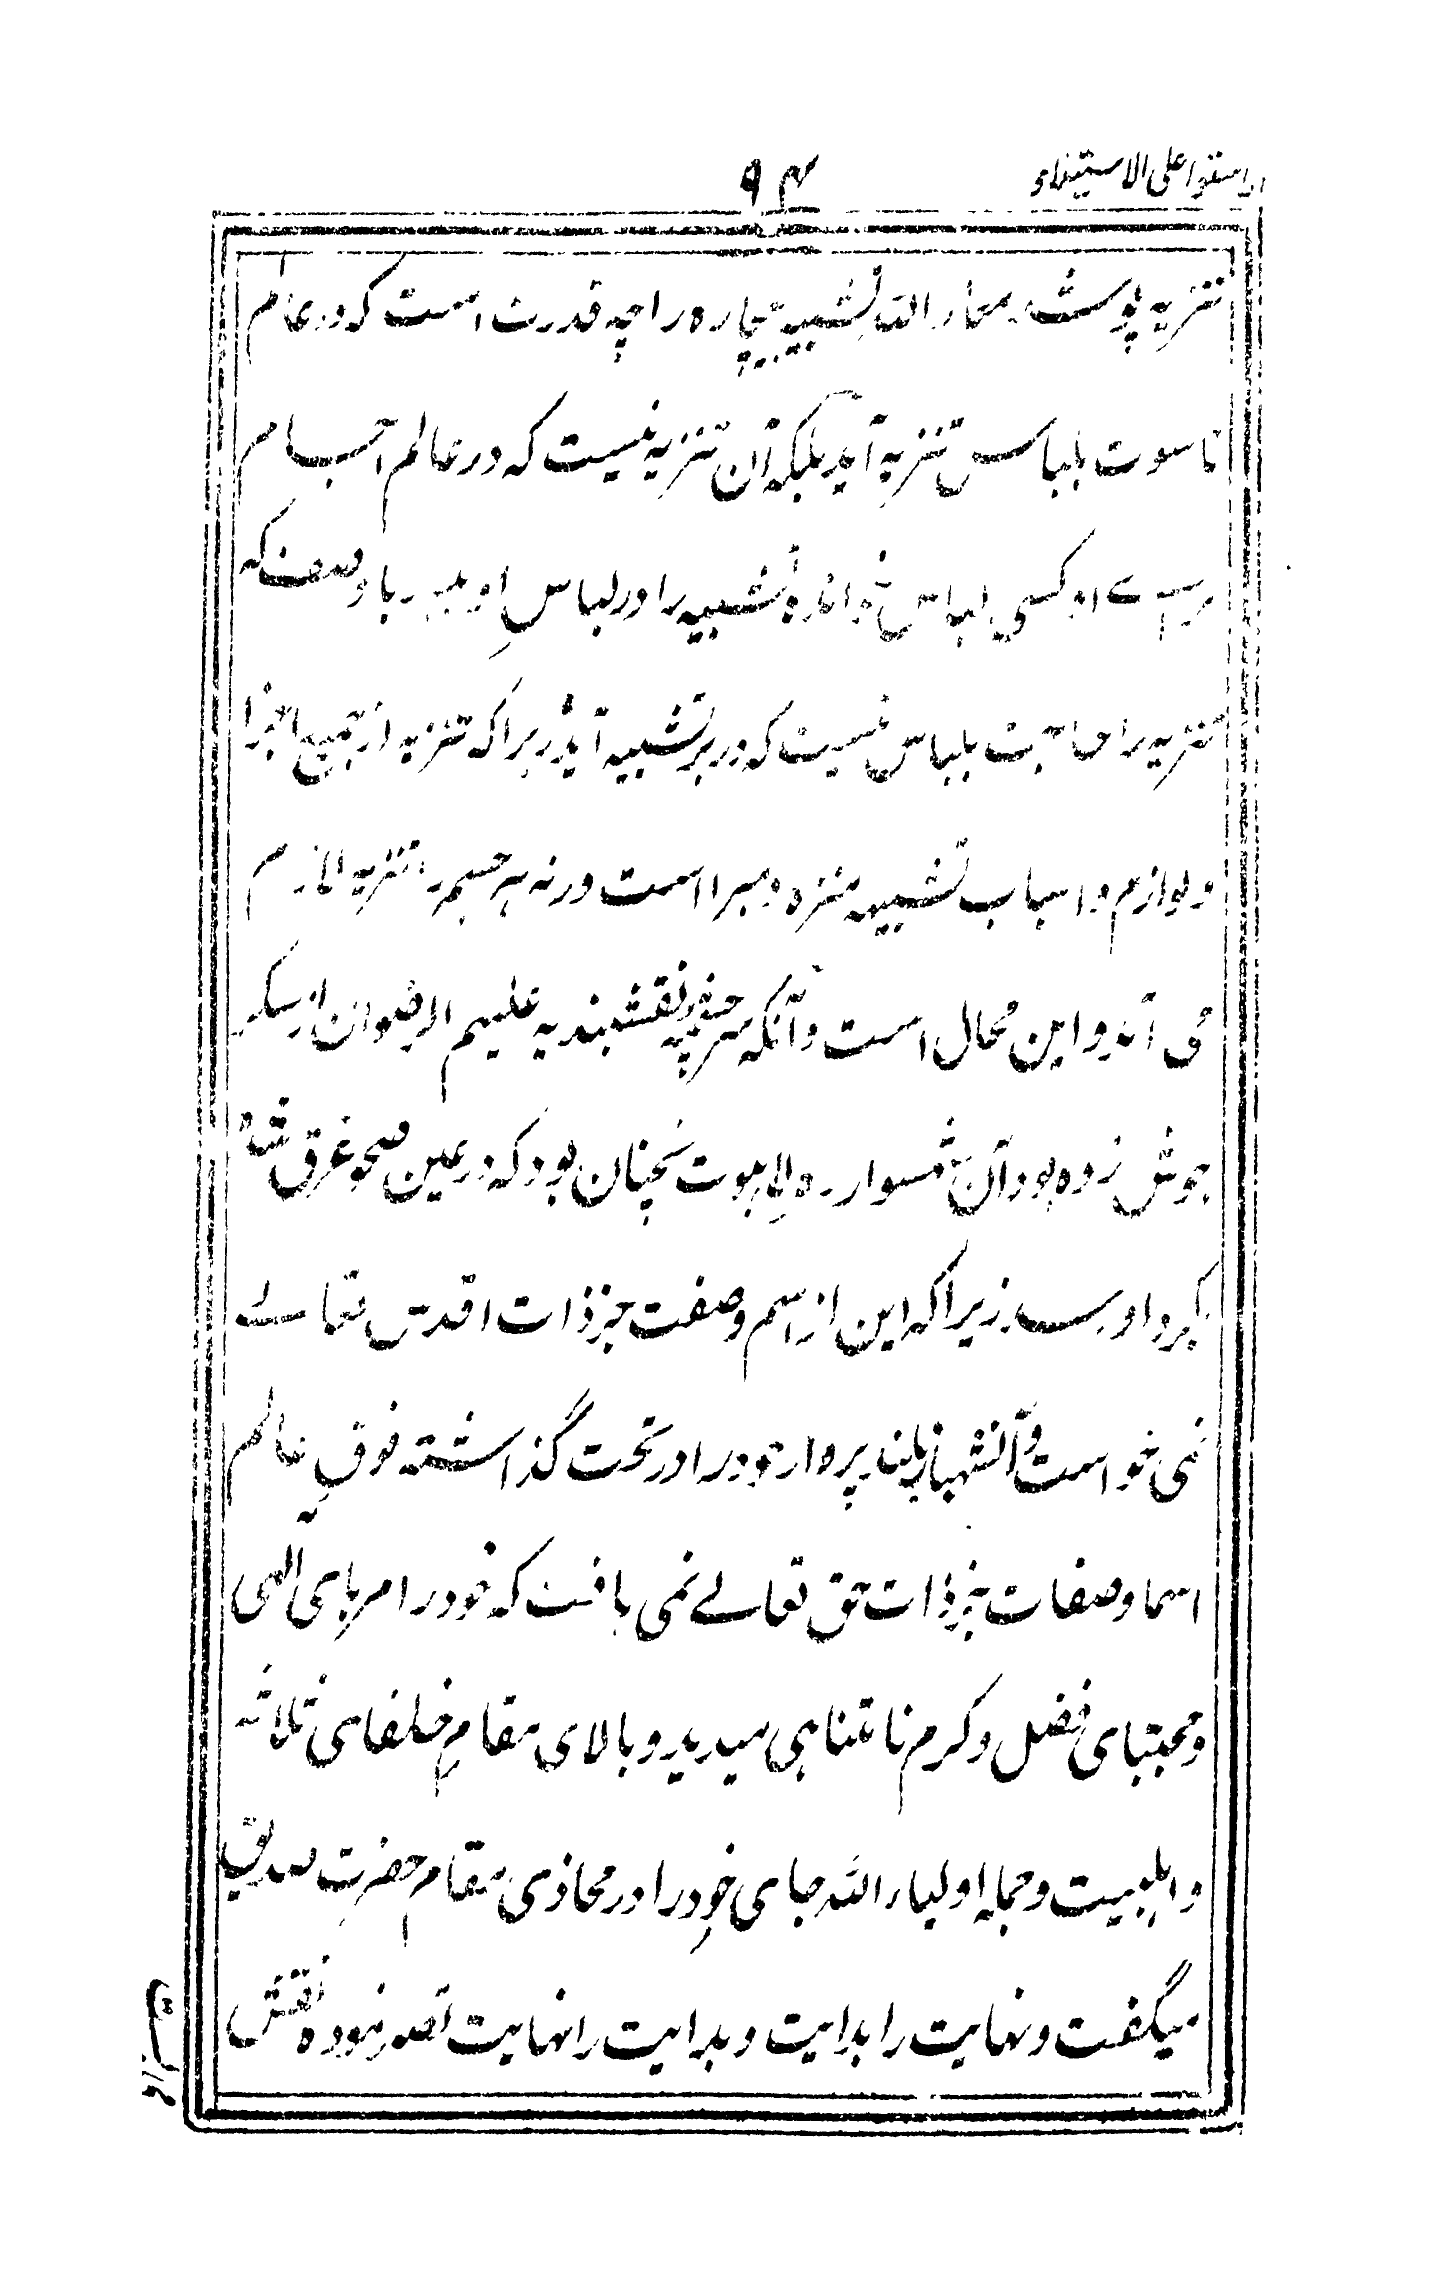 استقوا على الاستيفاء
۹۴
تنزیه پوشد معاذ الله تشبیه بیچاره را چه قدرت است که در عالم
ناسوت بلباس تنزیه آید بلکه آن تنزیه نیست که در عالم اجسام
کسی لباس تواند تشبیه را در لباس او با وصف که
تنزیه را حاجت بلباس نیست که در بر تشبیه آید زیرا که تنزیه از جمیع اجزا
و لوازم و اسباب تشبیه منزه و مبرا است ورنه هر جسم را تنزیه لازم
می آید و این محال است و آنکه سرچشمه نقشبندیه علیهم الرضوان از سکر
جوش زده بود آن شهسوار لاهوت چنان بود که در عین صحو غرق
زیرا که این از اسم و صفت جز ذات اقدس تعالے
نمی خواست و آنشهباز بلند پرواز خود را در تحت گذاشته فوق عالم
اسما و صفات جز ذات حق تعالے نمی یافت که خود را مربای الهی
و مجتبای فضل و کرم نامتناهی میدید و بالای مقام خلفای ثلاثه
و اہلبیت و جمله اولیاء الله جای خود را در محاذی مقام حضرت صدیق
میگفت و نهایت را بدایت و بدایت را نهایت تصور نموده نقش